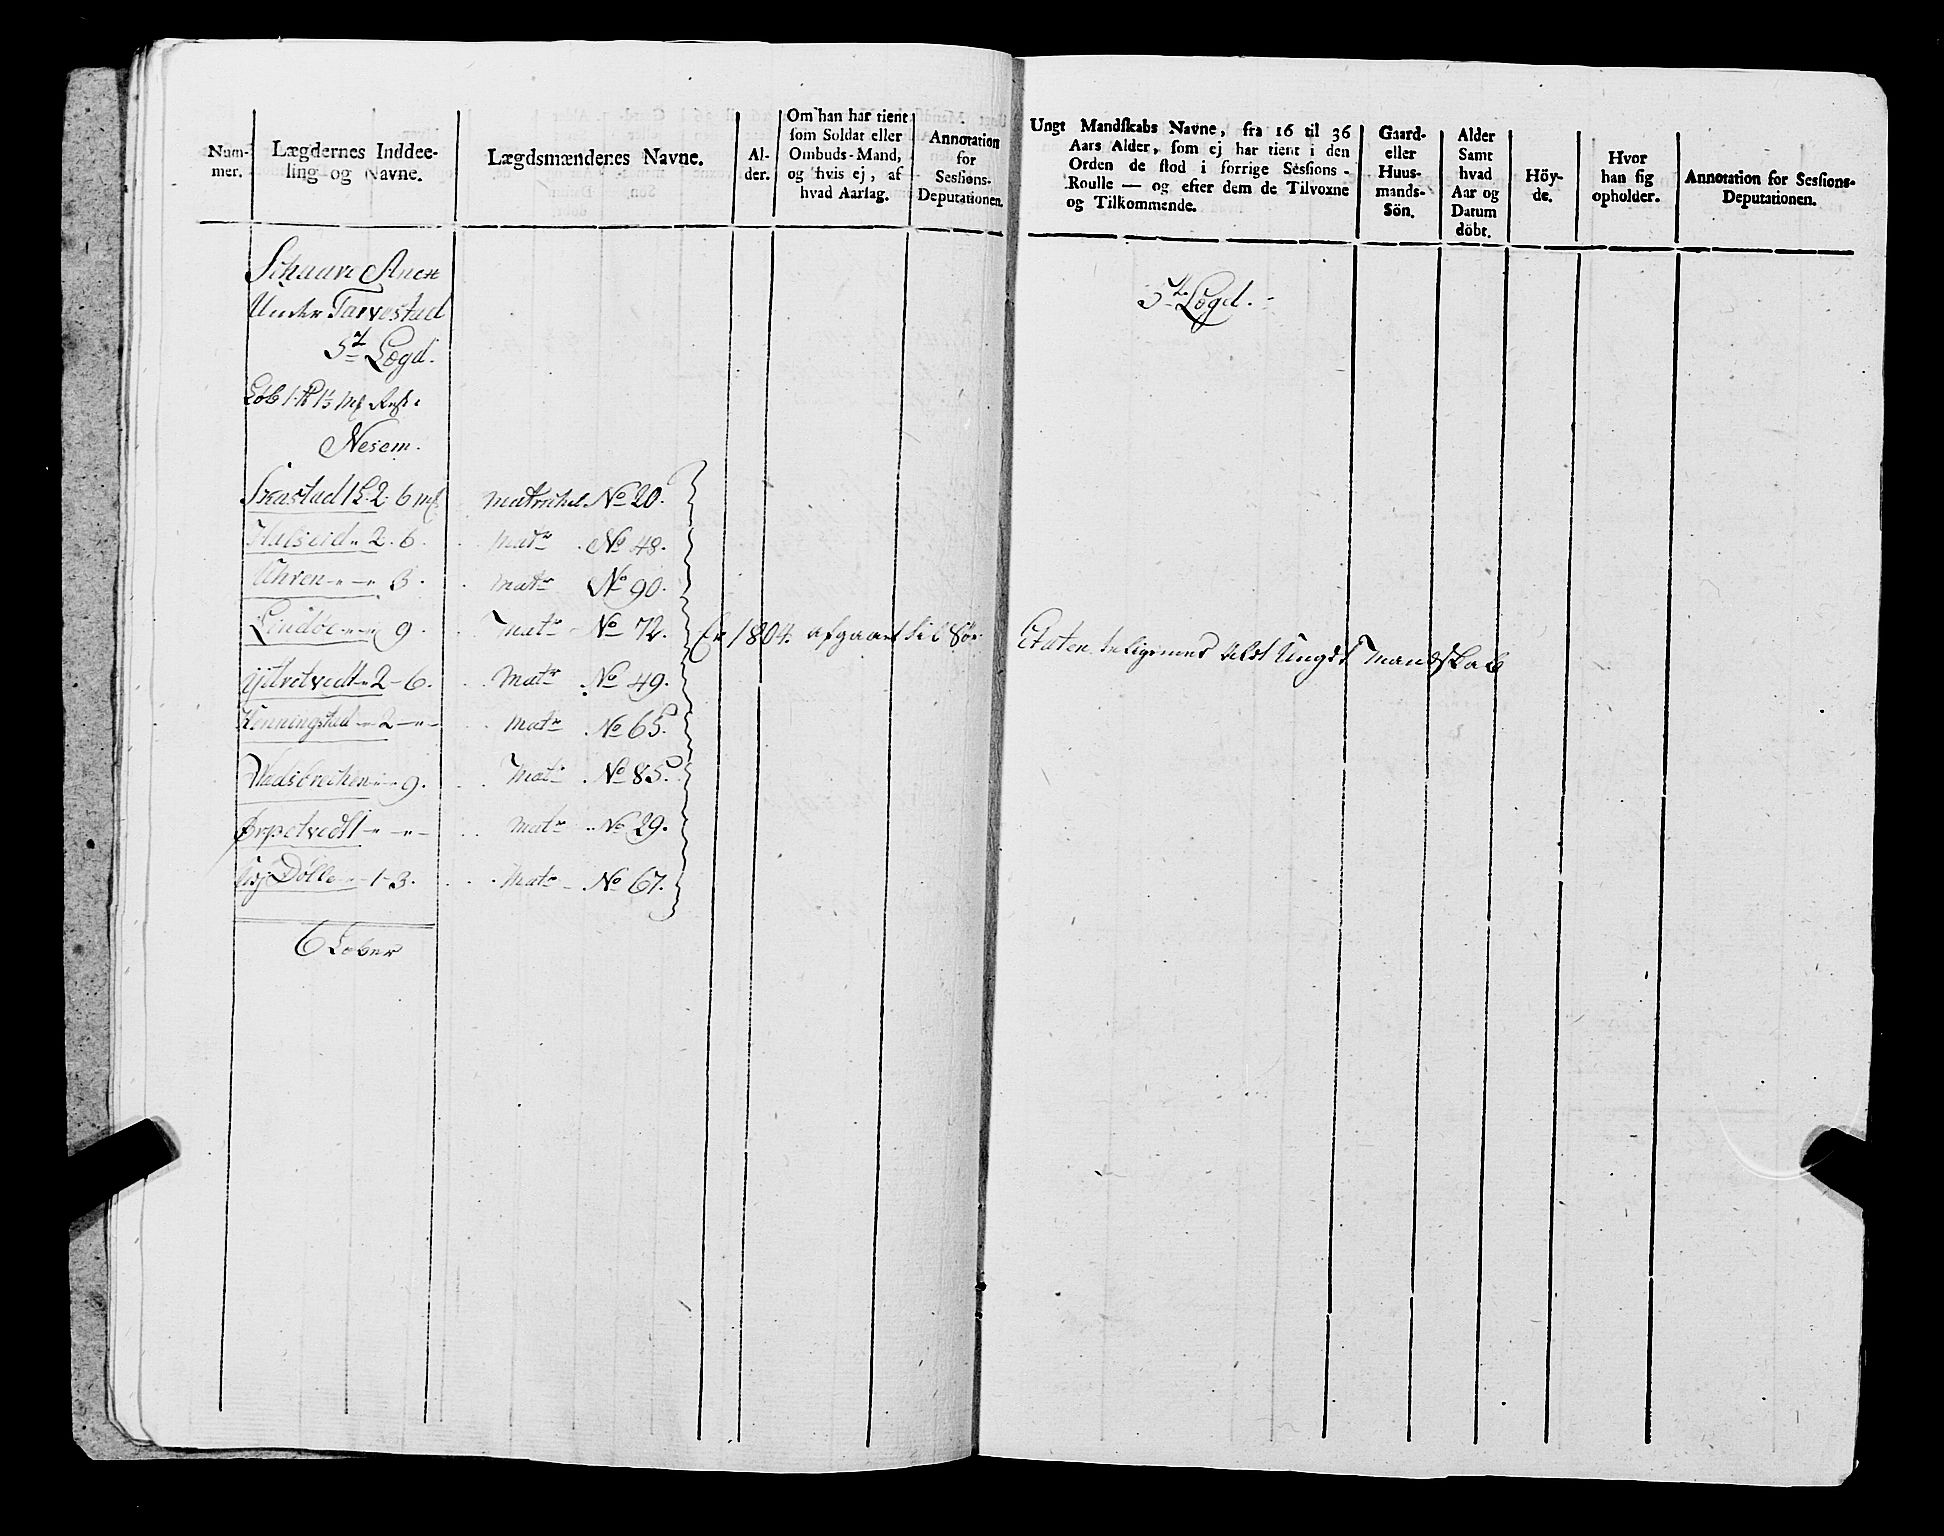 Num-
mer.
Lægdernes Inddee-
ling og Navne.
Lægdsmændenes Navne.
Al-
der.
Om han har tient
som Soldat eller
Ombuds-Mand,
og hvis ej, af
hvad Aarsag.
Annotation
for
Sessions-
Deputationen.
Schaare Anex
Under Torvestad
5te Lægd.
Løb 1 1½ Mk
Nesem.
Stenstad 1 L. 2. 6 mk matrichel No 20.
Halseid " 2. 6. Matr No 48.
Ahren " " 3. Matr No 90.
Lindøe " " 9. Matr No 72. Er 1804. afgaaet til Søe
ijtretvedt " 2 - 6. Matr No 49.
Henningstad " 2 " Matr No 65.
" " 9. Matr No 85.
Ørpetvedt " " Matr No 29.
Dølle " 1 - 3. Matr No 67.
6 Løber
Ungt Mandskabs Navne, fra 16 til 36
Aars Alder, som ej har tient i den
Orden de stod i forrige Sessions-
Roulle — og efter dem de Tilvoxne
og Tilkommende.
Gaard-
eller
Huus-
mands-
Sön.
Alder
Samt
hvad
Aar og
Datum
döbt.
Höy-
de.
Hvor
han sig
opholder.
Annotation for Sessions-
Deputationen.
5te Lægd.
Etaten tilligemed alt Ungdt Mandskab